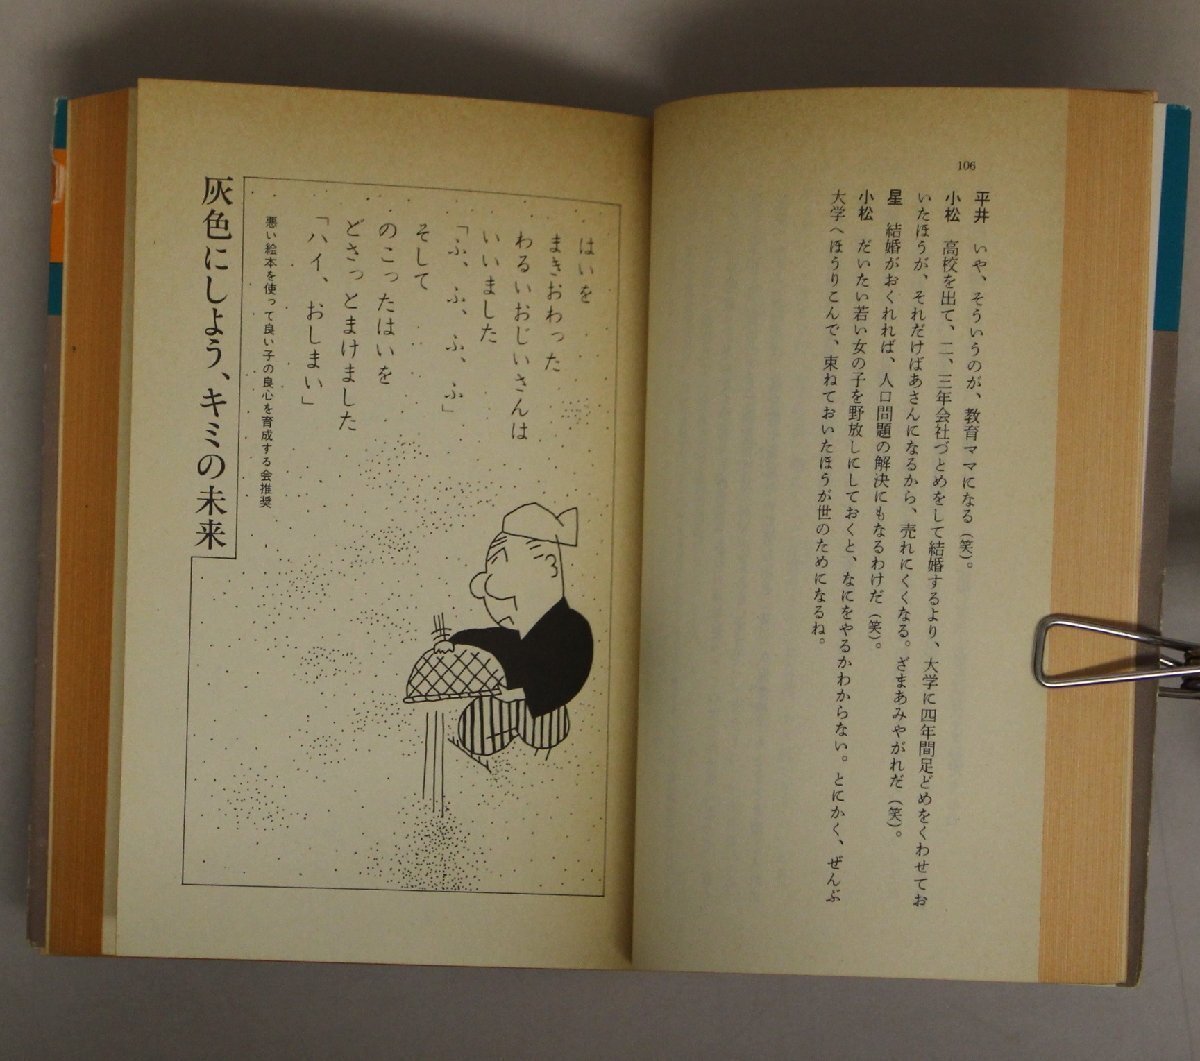 106
平井　いや、そういうのが、教育ママになる（笑）。
小松　高校を出て、二、三年会社づとめをして結婚するより、大学に四年間足どめをくわせてお
いたほうが、それだけばあさんになるから、売れにくくなる。ざまあみやがれだ（笑）。
星　結婚がおくれれば、人口問題の解決にもなるわけだ（笑）。
小松　だいたい若い女の子を野放しにしておくと、なにをやるかわからない。とにかく、ぜんぶ
大学へほうりこんで、束ねておいたほうが世のためになるね。
はいを
まきおわった
わるいおじいさんは
いいました
「ふ、ふ、ふ、ふ」
そして
のこったはいを
どさっとまけました
「ハイ、おしまい」
悪い絵本を使って良い子の良心を育成する会推奨
灰色にしよう、キミの未来